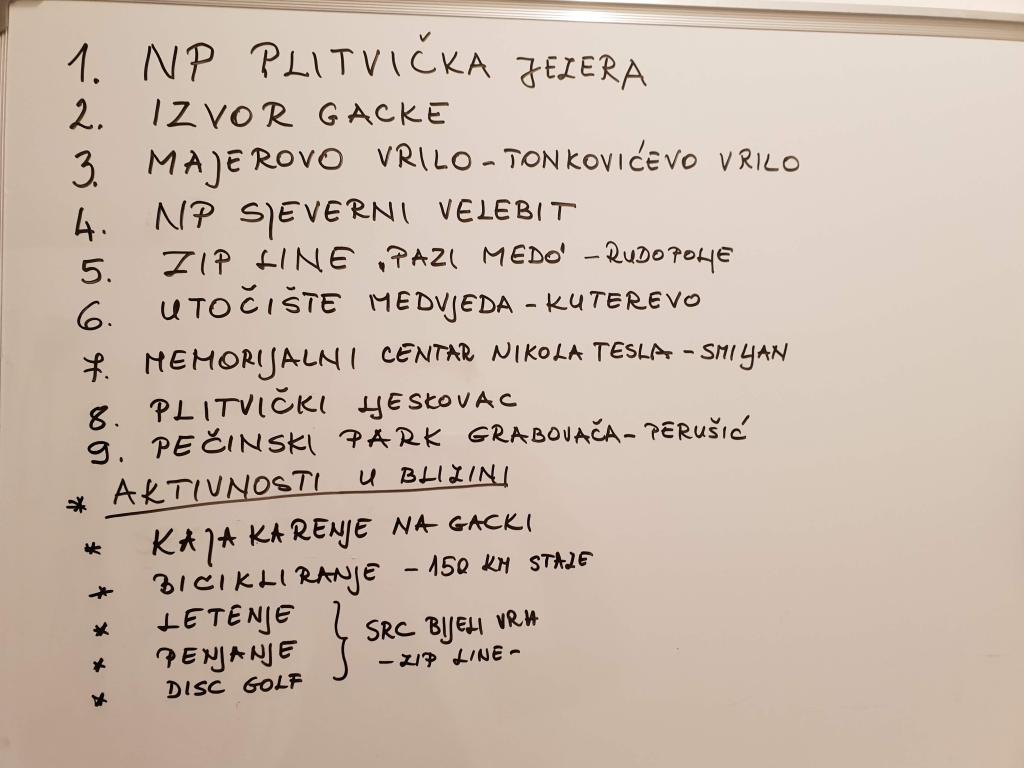 1. NP PLITVIČKA JEZERA
2. IZVOR GACKE
3. MAJEROVO VRILO - TONKOVIĆEVO VRILO
4. NP SJEVERNI VELEBIT
5. ZIP LINE "PAZI MEDO" - RUDOPOLJE
6. UTOČIŠTE MEDVJEDA - KUTEREVO
7. MEMORIJALNI CENTAR NIKOLA TESLA - SMILJAN
8. PLITVIČKI LJESKOVAC
9. PEČINSKI PARK GRABOVAČA - PERUŠIĆ
* AKTIVNOSTI U BLIZINI
* KAJAKARENJE NA GACKI
* BICIKLIRANJE - 150 KM STAZE
* LETENJE
* PENJANJE
* DISC GOLF
} SRC BIJELI VRH
- ZIP LINE -